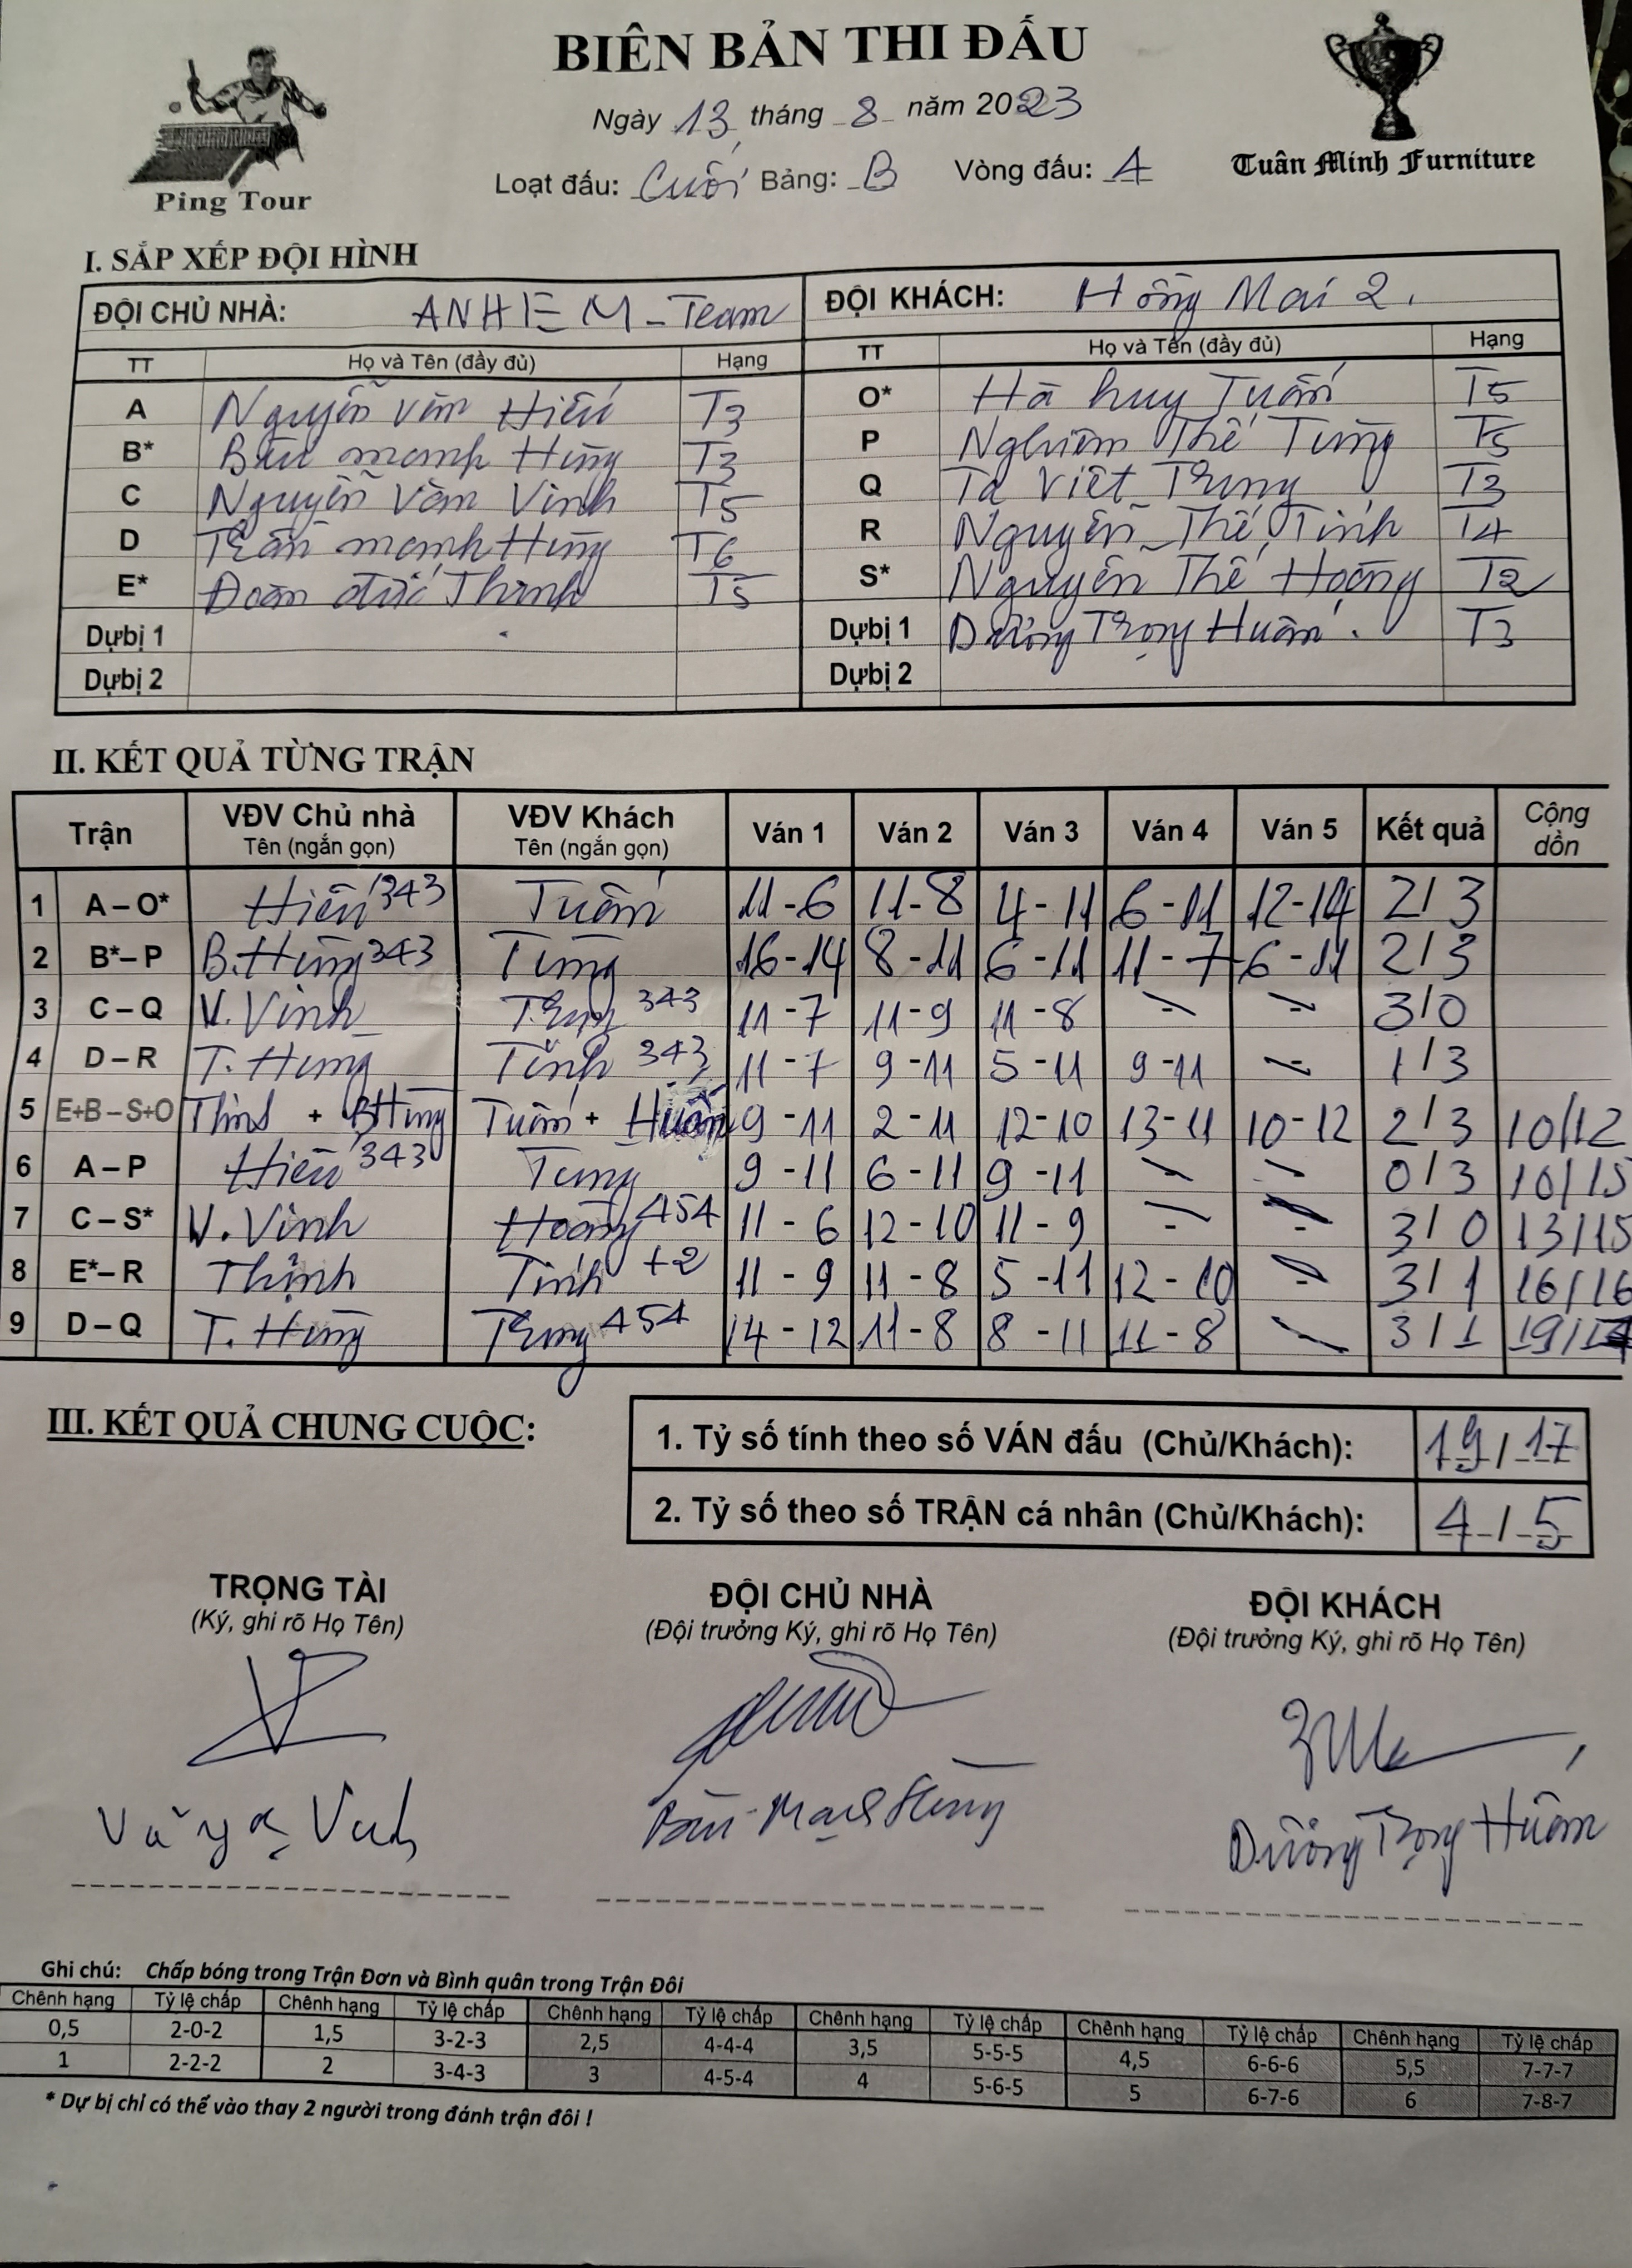 BIÊN BẢN THI ĐẤU
Ngày 13 tháng 8 năm 2023
Loạt đấu: Cuối Bảng: B Vòng đấu: 4
Ping Tour
Tuân Minh Furniture
I. SẮP XẾP ĐỘI HÌNH
ĐỘI CHỦ NHÀ: ANH EM - Team ĐỘI KHÁCH: Hồng Mai 2.
TT Họ và Tên (đầy đủ) Hạng TT Họ và Tên (đầy đủ) Hạng
A Nguyễn Văn Hiếu T3 O* Hà huy Tuấn T5
B* Bùi mạnh Hùng T3 P Nghiêm Thế Tùng T5
C Nguyễn Văn Vinh T5 Q Tạ Viết Trung T3
D Trần mạnh Hùng T6 R Nguyễn Thế Tính T4
E* Đoàn đức Thịnh T5 S* Nguyễn Thế Hoàng T2
Dự bị 1 Dự bị 1 Dương Trọng Huấn. T3
Dự bị 2 Dự bị 2
II. KẾT QUẢ TỪNG TRẬN
Trận VĐV Chủ nhà Tên (ngắn gọn) VĐV Khách Tên (ngắn gọn) Ván 1 Ván 2 Ván 3 Ván 4 Ván 5 Kết quả Cộng dồn
1 A – O* Hiếu 343 Tuấn 11-6 11-8 4-11 6-11 12-14 2/3
2 B* – P B.Hùng 343 Tùng 16-14 8-11 6-11 11-7 6-11 2/3
3 C – Q V.Vinh Trung 343 11-7 11-9 11-8 - - 3/0
4 D – R T.Hùng Tính 343 11-7 9-11 5-11 9-11 - 1/3
5 E+B – S+O Thịnh + BHùng Tuấn + Huấn 9-11 2-11 12-10 13-11 10-12 2/3 10/12
6 A – P Hiếu 343 Tùng 9-11 6-11 9-11 - - 0/3 10/15
7 C – S* V.Vinh Hoàng 454 11-6 12-10 11-9 - - 3/0 13/15
8 E* – R Thịnh Tính +2 11-9 11-8 5-11 12-10 - 3/1 16/16
9 D – Q T.Hùng Trung 454 14-12 11-8 8-11 11-8 - 3/1 19/17
III. KẾT QUẢ CHUNG CUỘC:
1. Tỷ số tính theo số VÁN đấu (Chủ/Khách): 19/17
2. Tỷ số theo số TRẬN cá nhân (Chủ/Khách): 4/5
TRỌNG TÀI ĐỘI CHỦ NHÀ ĐỘI KHÁCH
(Ký, ghi rõ Họ Tên) (Đội trưởng Ký, ghi rõ Họ Tên) (Đội trưởng Ký, ghi rõ Họ Tên)
Bùi Mạnh Hùng Dương Trọng Huấn
Ghi chú: Chấp bóng trong Trận Đơn và Bình quân trong Trận Đôi
Chênh hạng Tỷ lệ chấp Chênh hạng Tỷ lệ chấp Chênh hạng Tỷ lệ chấp Chênh hạng Tỷ lệ chấp Chênh hạng Tỷ lệ chấp Chênh hạng Tỷ lệ chấp
0,5 2-0-2 1,5 3-2-3 2,5 4-4-4 3,5 5-5-5 4,5 6-6-6 5,5 7-7-7
1 2-2-2 2 3-4-3 3 4-5-4 4 5-6-5 5 6-7-6 6 7-8-7
* Dự bị chỉ có thể vào thay 2 người trong đánh trận đôi !